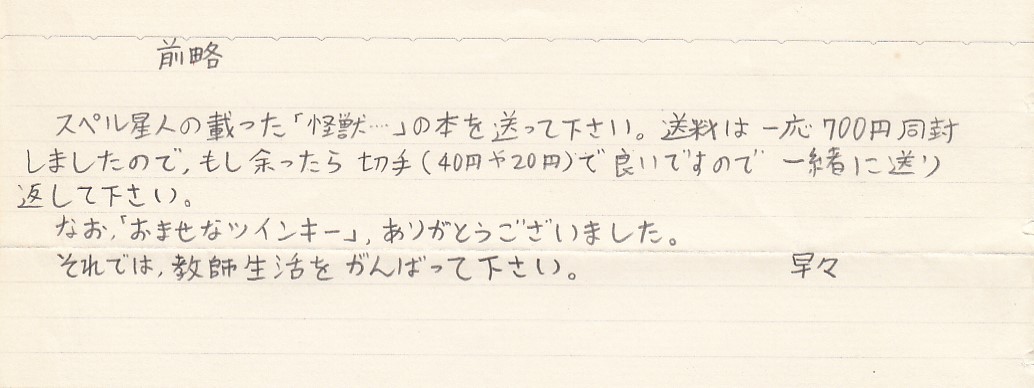 前略
スペル星人の載った「怪獣…」の本を送って下さい。送料は一応700円同封
しましたので,もし余ったら切手(40円や20円)で良いですので一緒に送り
返して下さい。
なお,「おませなツインキー」,ありがとうございました。
それでは,教師生活をがんばって下さい。 早々